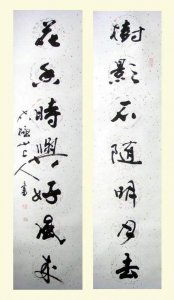 樹影不隨明月去
花香時與好風來
山人書